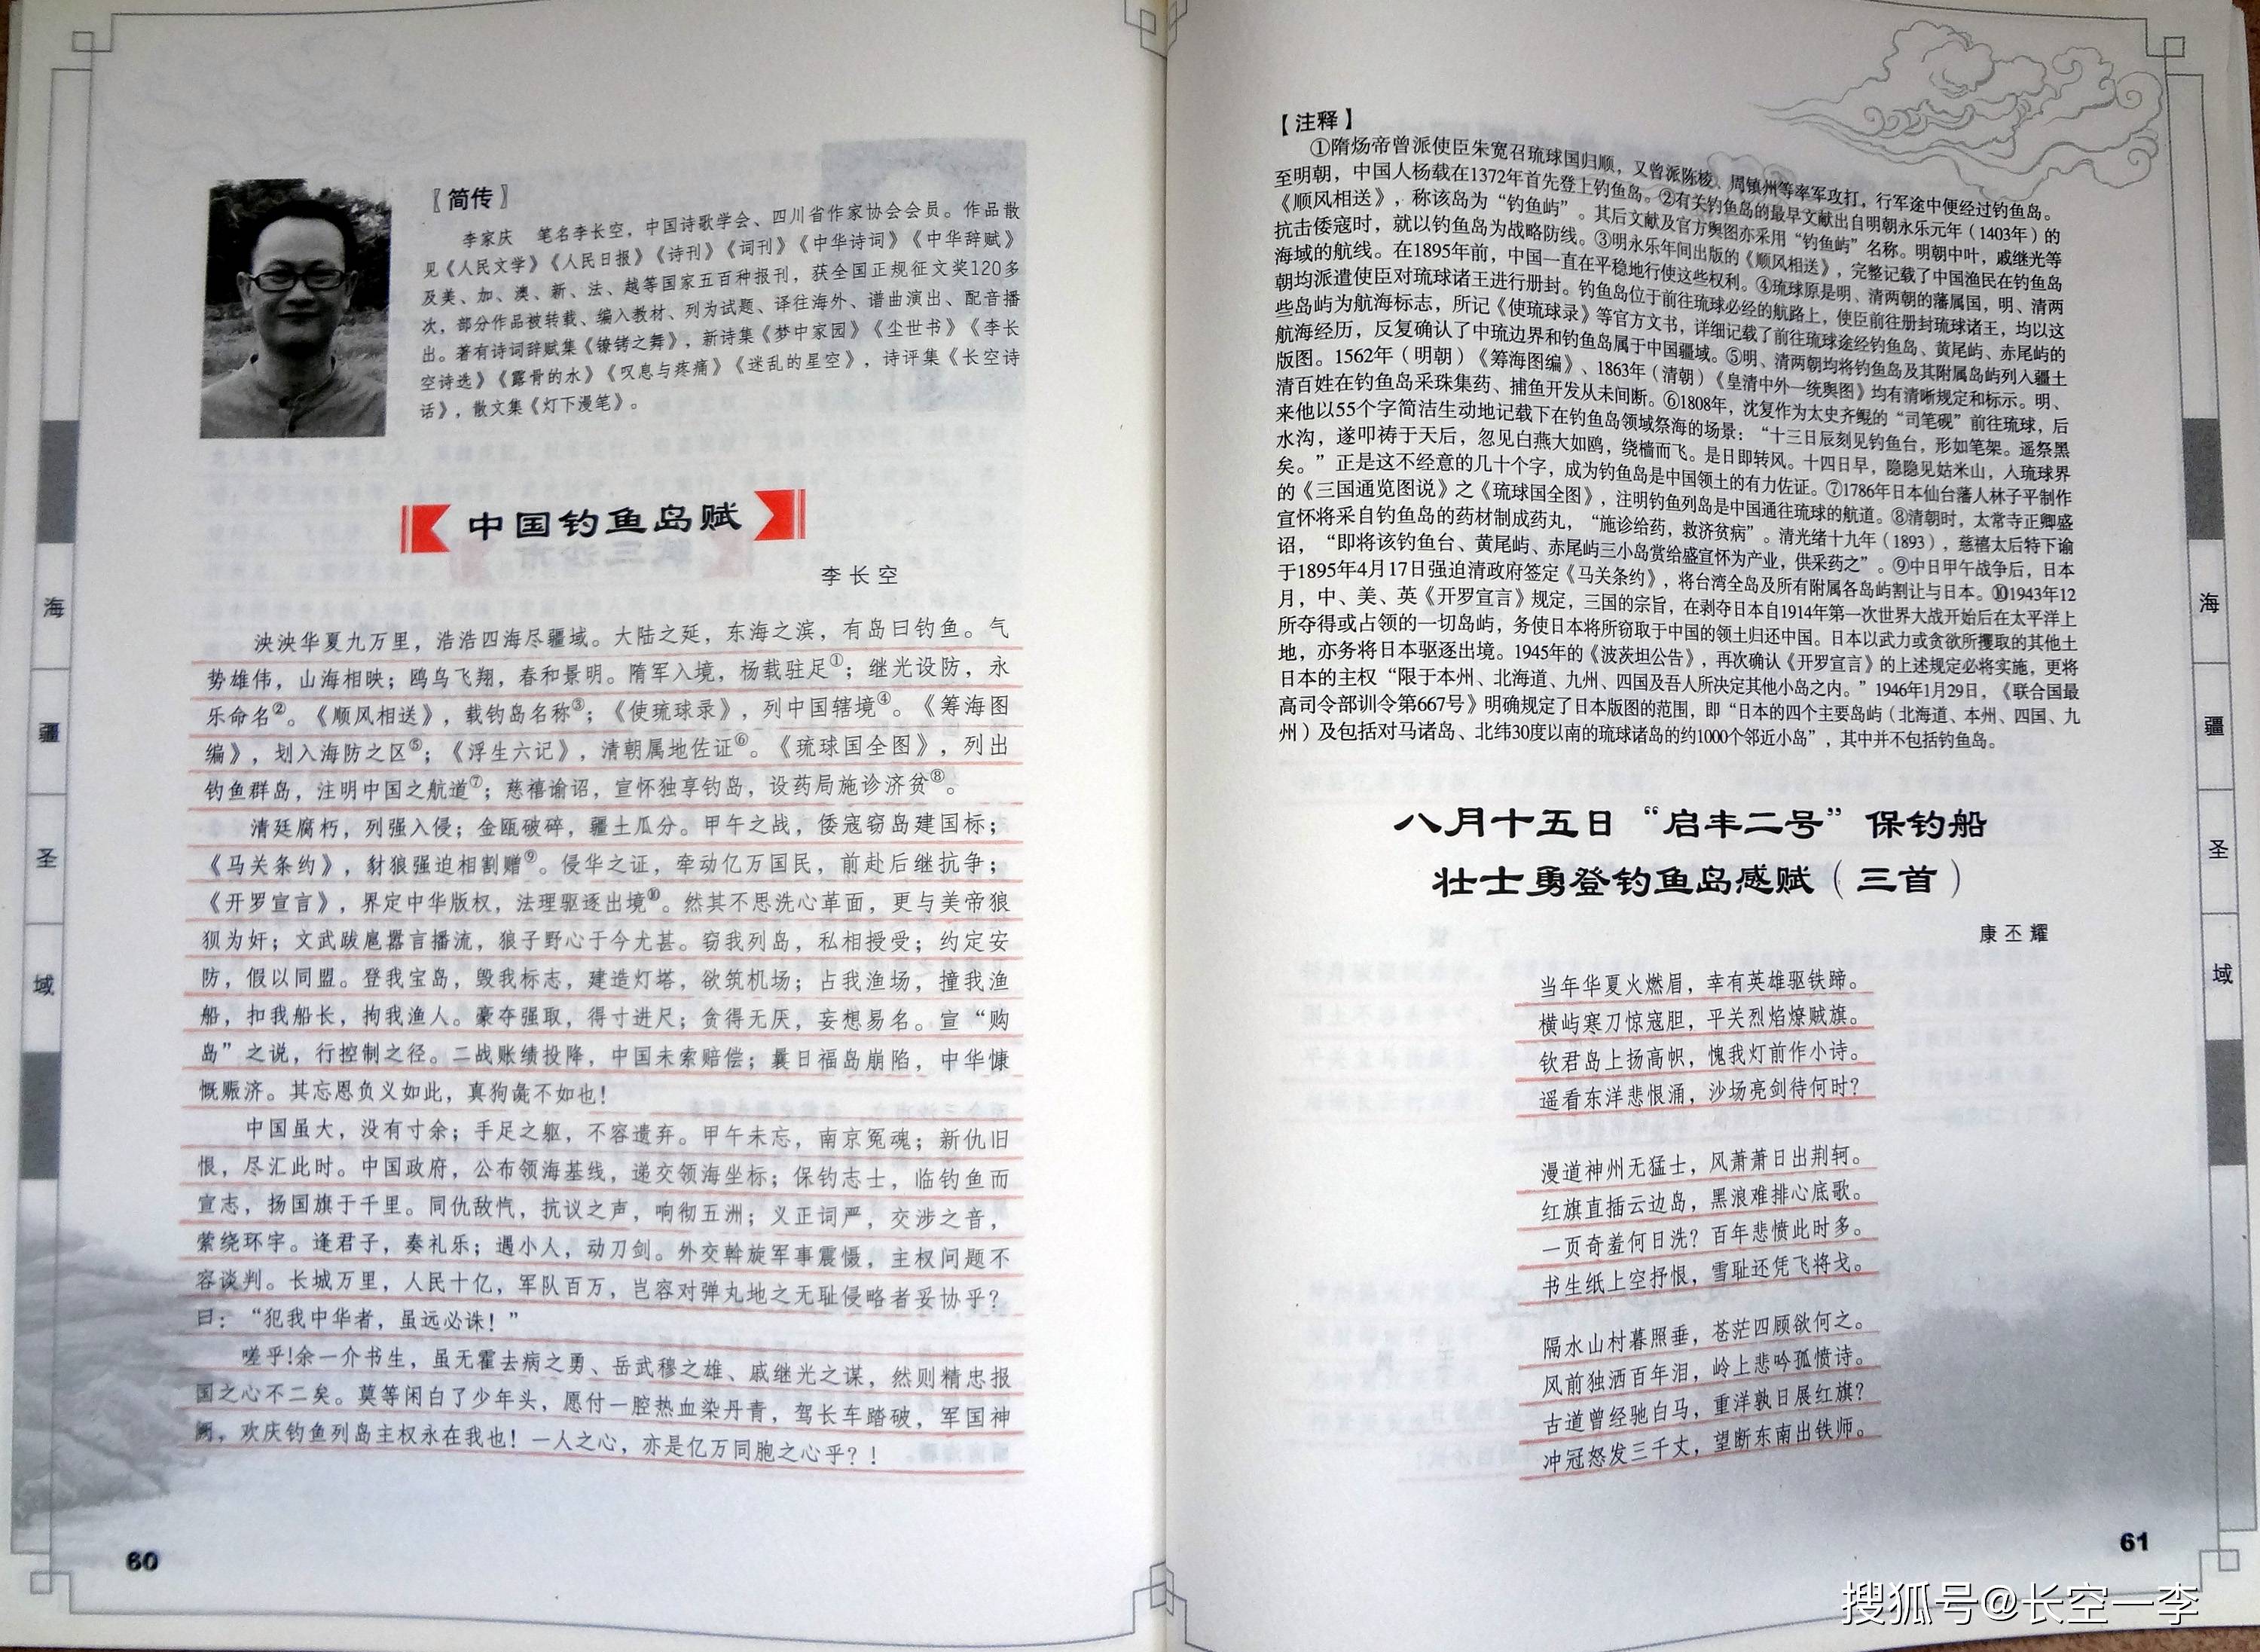 〖简传〗
李家庆　笔名李长空，中国诗歌学会、四川省作家协会会员。作品散
见《人民文学》《人民日报》《诗刊》《词刊》《中华诗词》《中华辞赋》
及美、加、澳、新、法、越等国家五百种报刊，获全国正规征文奖120多
次，部分作品被转载、编入教材、列为试题、译往海外、谱曲演出、配音播
出。著有诗词辞赋集《镣铐之舞》，新诗集《梦中家园》《尘世书》《李长
空诗选》《露骨的水》《叹息与疼痛》《迷乱的星空》，诗评集《长空诗
话》，散文集《灯下漫笔》。
中国钓鱼岛赋
李长空
泱泱华夏九万里，浩浩四海尽疆域。大陆之延，东海之滨，有岛曰钓鱼。气
势雄伟，山海相映；鸥鸟飞翔，春和景明。隋军入境，杨载驻足①；继光设防，永
乐命名②。《顺风相送》，载钓岛名称③；《使琉球录》，列中国辖境④。《筹海图
编》，划入海防之区⑤；《浮生六记》，清朝属地佐证⑥。《琉球国全图》，列出
钓鱼群岛，注明中国之航道⑦；慈禧谕诏，宣怀独享钓岛，设药局施诊济贫⑧。
清廷腐朽，列强入侵；金瓯破碎，疆土瓜分。甲午之战，倭寇窃岛建国标；
《马关条约》，豺狼强迫相割赠⑨。侵华之证，牵动亿万国民，前赴后继抗争；
《开罗宣言》，界定中华版权，法理驱逐出境⑩。然其不思洗心革面，更与美帝狼
狈为奸；文武跋扈嚣言播流，狼子野心于今尤甚。窃我列岛，私相授受；约定安
防，假以同盟。登我宝岛，毁我标志，建造灯塔，欲筑机场；占我渔场，撞我渔
船，扣我船长，拘我渔人。豪夺强取，得寸进尺；贪得无厌，妄想易名。宣“购
岛”之说，行控制之径。二战账绩投降，中国未索赔偿；曩日福岛崩陷，中华慷
慨赈济。其忘恩负义如此，真狗彘不如也！
中国虽大，没有寸余；手足之躯，不容遗弃。甲午未忘，南京冤魂；新仇旧
恨，尽汇此时。中国政府，公布领海基线，递交领海坐标；保钓志士，临钓鱼而
宣志，扬国旗于千里。同仇敌忾，抗议之声，响彻五洲；义正词严，交涉之音，
萦绕环宇。逢君子，奏礼乐；遇小人，动刀剑。外交斡旋军事震慑，主权问题不
容谈判。长城万里，人民十亿，军队百万，岂容对弹丸地之无耻侵略者妥协乎？
曰：“犯我中华者，虽远必诛！”
嗟乎！余一介书生，虽无霍去病之勇、岳武穆之雄、戚继光之谋，然则精忠报
国之心不二矣。莫等闲白了少年头，愿付一腔热血染丹青，驾长车踏破，军国神
阙，欢庆钓鱼列岛主权永在我也！一人之心，亦是亿万同胞之心乎？！
60
海
疆
圣
域
【注释】
①隋炀帝曾派使臣朱宽召琉球国归顺，又曾派陈棱、周镇州等率军攻打，行军途中便经过钓鱼岛。
至明朝，中国人杨载在1372年首先登上钓鱼岛。②有关钓鱼岛的最早文献出自明朝永乐元年（1403年）的
《顺风相送》，称该岛为“钓鱼屿”。其后文献及官方舆图亦采用“钓鱼屿”名称。明朝中叶，戚继光等
抗击倭寇时，就以钓鱼岛为战略防线。③明永乐年间出版的《顺风相送》，完整记载了中国渔民在钓鱼岛
海域的航线。在1895年前，中国一直在平稳地行使这些权利。④琉球原是明、清两朝的藩属国，明、清两
朝均派遣使臣对琉球诸王进行册封。钓鱼岛位于前往琉球必经的航路上，使臣前往册封琉球诸王，均以这
些岛屿为航海标志，所记《使琉球录》等官方文书，详细记载了前往琉球途经钓鱼岛、黄尾屿、赤尾屿的
航海经历，反复确认了中琉边界和钓鱼岛属于中国疆域。⑤明、清两朝均将钓鱼岛及其附属岛屿列入疆土
版图。1562年（明朝）《筹海图编》、1863年（清朝）《皇清中外一统舆图》均有清晰规定和标示。明、
清百姓在钓鱼岛采珠集药、捕鱼开发从未间断。⑥1808年，沈复作为太史齐鲲的“司笔砚”前往琉球，后
来他以55个字简洁生动地记载下在钓鱼岛领域祭海的场景：“十三日辰刻见钓鱼台，形如笔架。遥祭黑
水沟，遂叩祷于天后，忽见白燕大如鸥，绕樯而飞。是日即转风。十四日早，隐隐见姑米山，人琉球界
矣。”正是这不经意的几十个字，成为钓鱼岛是中国领土的有力佐证。⑦1786年日本仙台藩人林子平制作
的《三国通览图说》之《琉球国全图》，注明钓鱼列岛是中国通往琉球的航道。⑧清朝时，太常寺正卿盛
宣怀将采自钓鱼岛的药材制成药丸，“施诊给药，救济贫病”。清光绪十九年（1893），慈禧太后特下谕
诏，“即将该钓鱼台、黄尾屿、赤尾屿三小岛赏给盛宣怀为产业，供采药之”。⑨中日甲午战争后，日本
于1895年4月17日强迫清政府签定《马关条约》，将台湾全岛及所有附属各岛屿割让与日本。⑩1943年12
月，中、美、英《开罗宣言》规定，三国的宗旨，在剥夺日本自1914年第一次世界大战开始后在太平洋上
所夺得或占领的一切岛屿，务使日本将所窃取于中国的领土归还中国。日本以武力或贪欲所攫取的其他土
地，亦务将日本驱逐出境。1945年的《波茨坦公告》，再次确认《开罗宣言》的上述规定必将实施，更将
日本的主权“限于本州、北海道、九州、四国及吾人所决定其他小岛之内。”1946年1月29日，《联合国最
高司令部训令第667号》明确规定了日本版图的范围，即“日本的四个主要岛屿（北海道、本州、四国、九
州）及包括对马诸岛、北纬30度以南的琉球诸岛的约1000个邻近小岛”，其中并不包括钓鱼岛。
八月十五日“启丰二号”保钓船
壮士勇登钓鱼岛感赋（三首）
康丕耀
当年华夏火燃眉，幸有英雄驱铁蹄。
横屿寒刀惊寇胆，平关烈焰燎贼旗。
钦君岛上扬高帜，愧我灯前作小诗。
遥看东洋悲恨涌，沙场亮剑待何时？
漫道神州无猛士，风萧萧日出荆轲。
红旗直插云边岛，黑浪难排心底歌。
一页奇羞何日洗？百年悲愤此时多。
书生纸上空抒恨，雪耻还凭飞将戈。
隔水山村暮照垂，苍茫四顾欲何之。
风前独洒百年泪，岭上悲吟孤愤诗。
古道曾经驰白马，重洋孰日展红旗？
冲冠怒发三千丈，望断东南出铁师。
61
海
疆
圣
域
搜狐号@长空一李